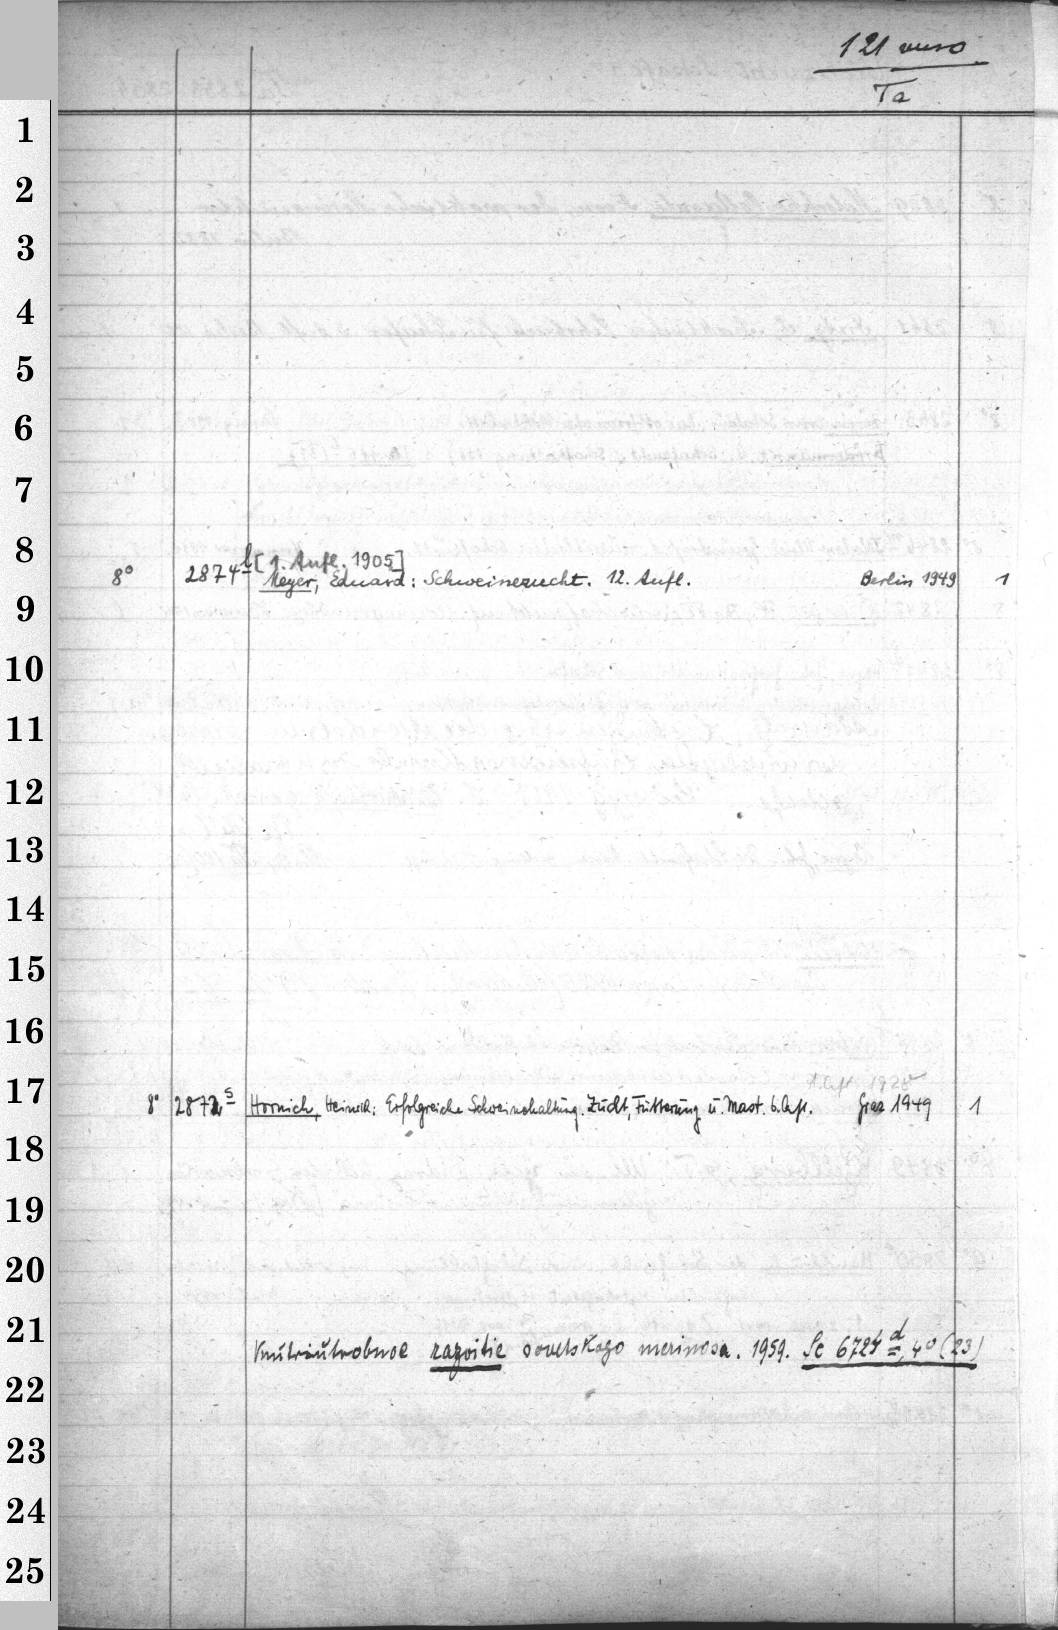 121 verso
Ta
1
2
3
4
5
6
7
8
[1. Aufl. 1905]
8° 2874 l Meyer, Eduard: Schweinezucht. 12. Aufl. Berlin 1949 1
9
10
11
12
13
14
15
16
17
1. Aufl. 1928
8° 2872 s Hornich, Heinrich: Erfolgreiche Schweinehaltung. Zucht, Fütterung u. Mast. 6. Aufl. Graz 1949 1
18
19
20
21
Vnutriutrobnoe razvitie sovetskago merinosa. 1959. Sc 6724 d, 4° (23)
22
23
24
25